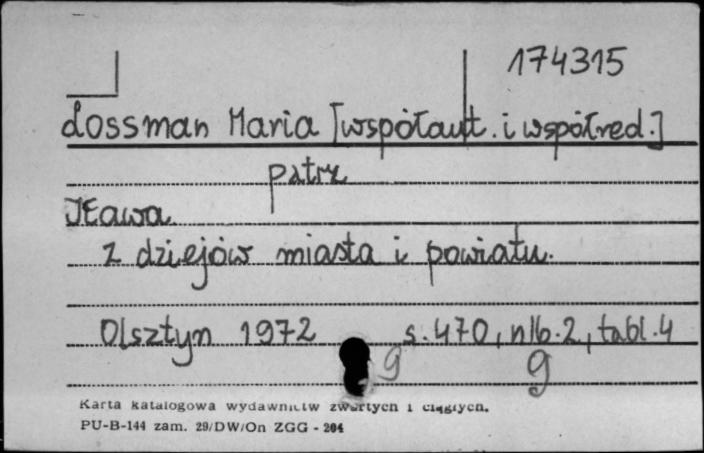 174315
Lossman Maria [współaut. i współred.]
patrz
Iława
z dziejów miasta i powiatu.
Olsztyn 1972 s. 470, nlb. 2, tabl. 4
9 9
Karta katalogowa wydawnictw zwartych i ciągłych.
PU-B-144 zam. 29/DW/On ZGG - 204